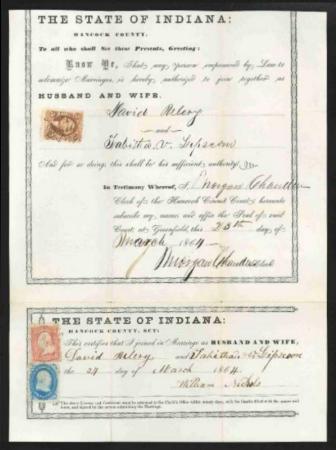 THE STATE OF INDIANA:
HANCOCK COUNTY:
To all who shall See these Presents, Greeting:
Know Ye, That any person empowered by Law to
solemnize Marriages, is hereby authorized to join together as
HUSBAND AND WIFE.
David
and
Tabitha V. Lipscom
And for so doing, this shall be his sufficient authority.
In Testimony Whereof, I, Morgan Chandler
Clerk of the Hancock Court, hereunto
subscribe my name and affix the Seal of said
Court at Greenfield, this 23th day of
March 1864
Morgan Chandler
THE STATE OF INDIANA:
HANCOCK COUNTY, SCT:
This certifies that I joined in Marriage as HUSBAND AND WIFE,
David and Tabitha V Lipscom
the 24 day of March 1864.
William Nichols